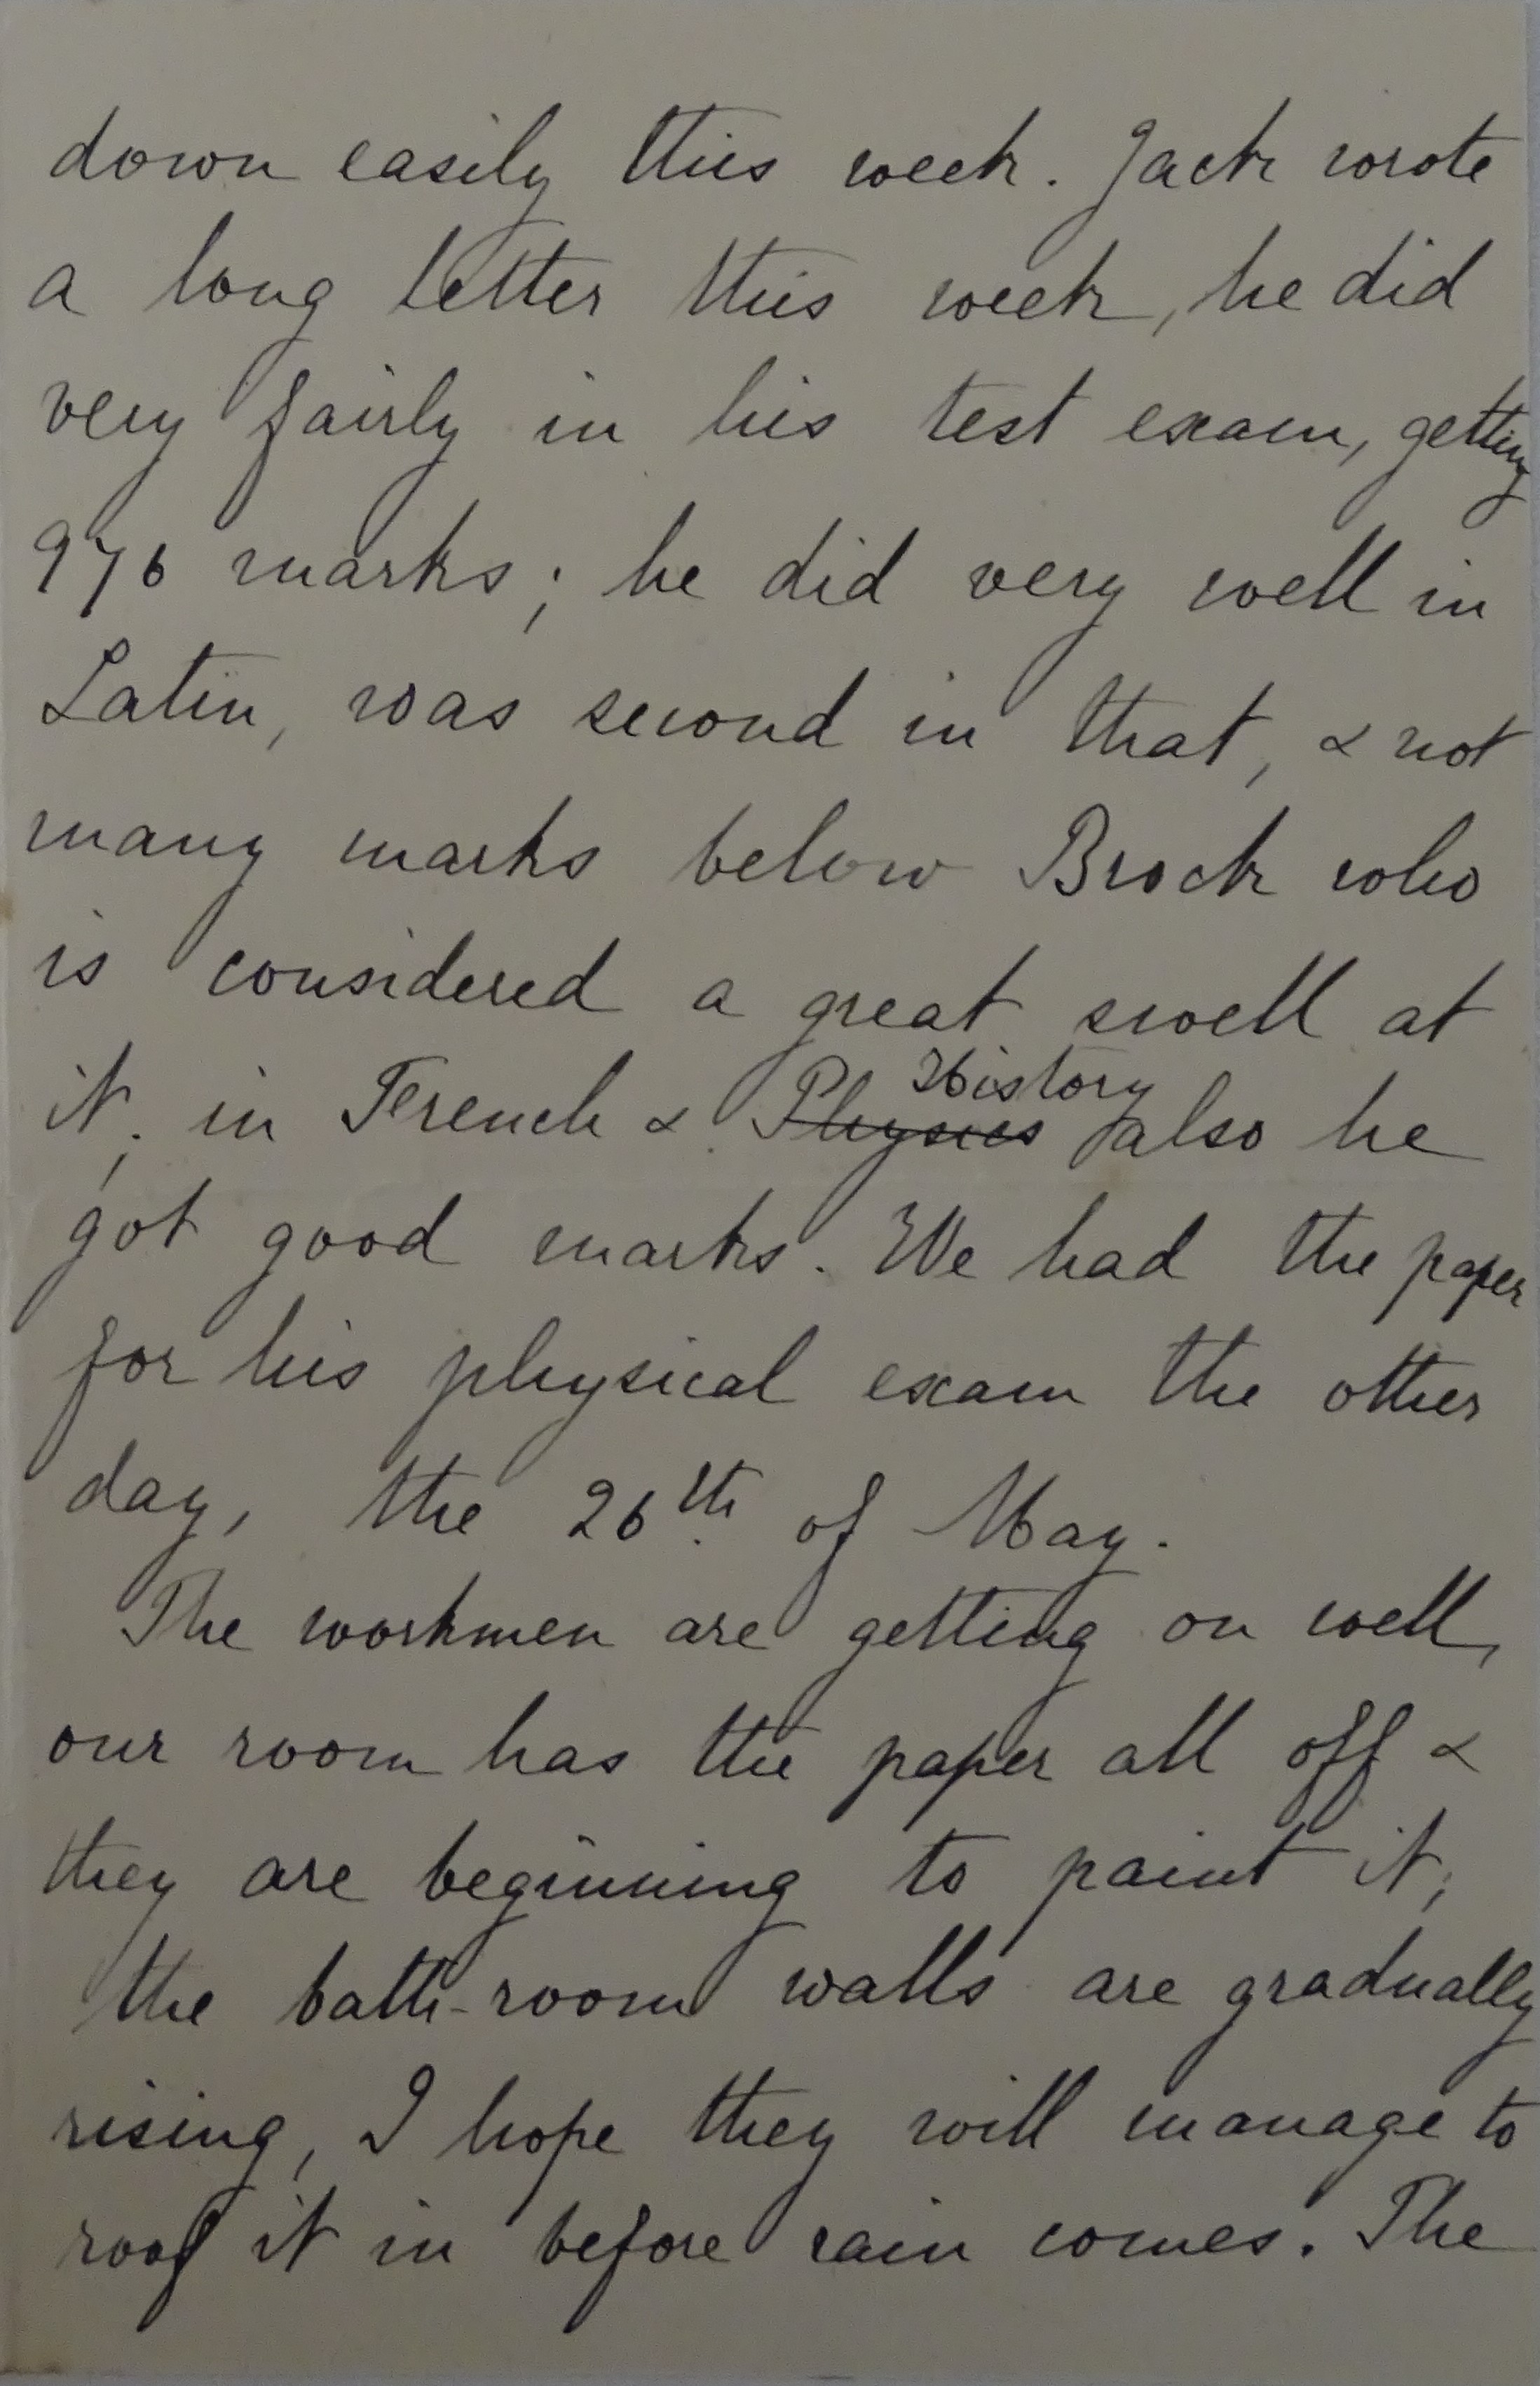 down easily this week. Jack wrote
a long letter this week, he did
very fairly in his test exam, getting
976 marks; he did very well in
Latin, was second in that, & not
many marks below Brock who
is considered a great swell at
it, in French & Physics History also he
got good marks. We had the paper
for his physical exam the other
day, the 26th of May.
The workmen are getting on well,
our room has the paper all off &
they are beginning to paint it;
the bath-room walls are gradually
rising, I hope they will manage to
roof it in before rain comes. The